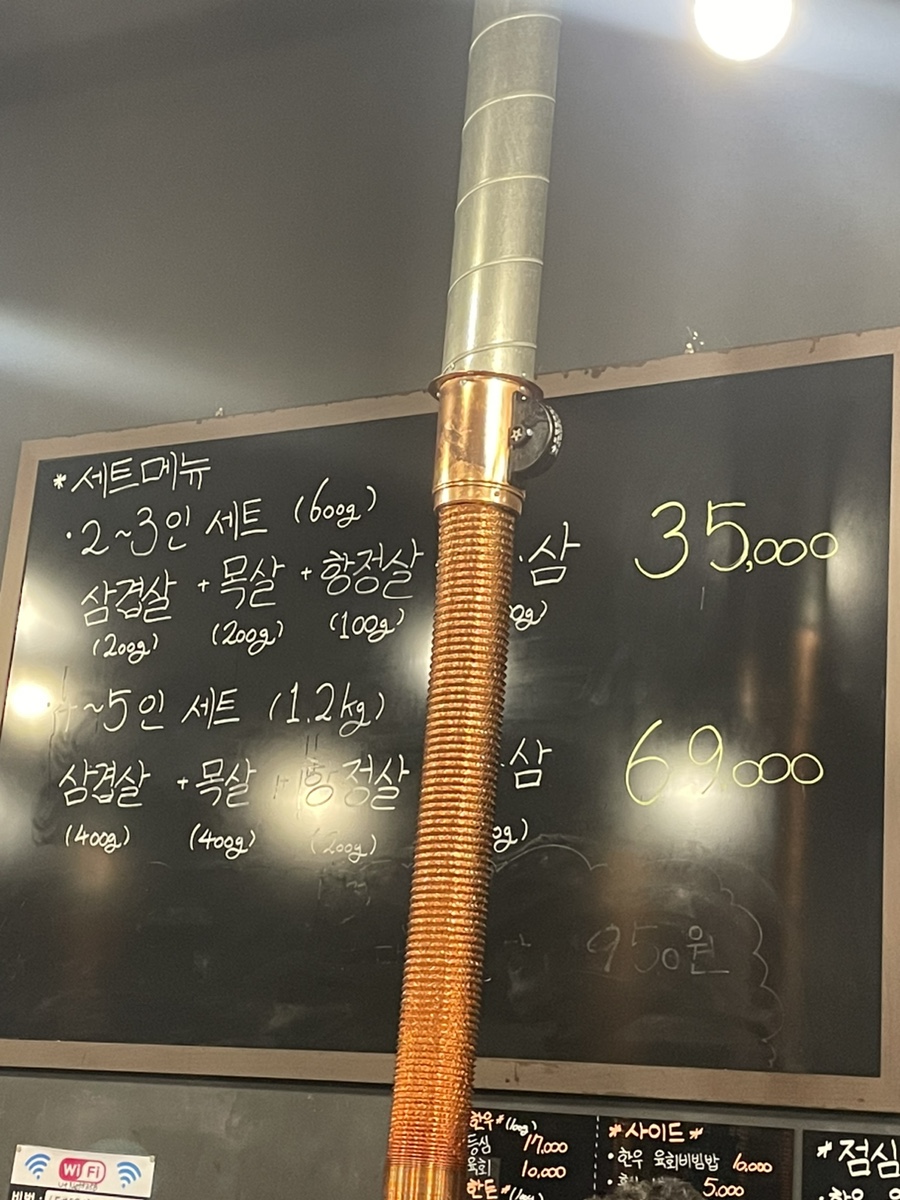 *세트메뉴
·2~3인 세트 (600g) 35,000
삼겹살 + 목살 + 항정살 ·삼
(200g) (200g) (100g)
~5인 세트 (1.2kg)
삼겹살 + 목살 + 항정살 ·삼 69,000
(400g) (400g) (200g)
950원
WiFi
한우*(100g)
등심 17,000
육회 10,000
*사이드*
·한우 육회비빔밥 10,000
5,000
*점심